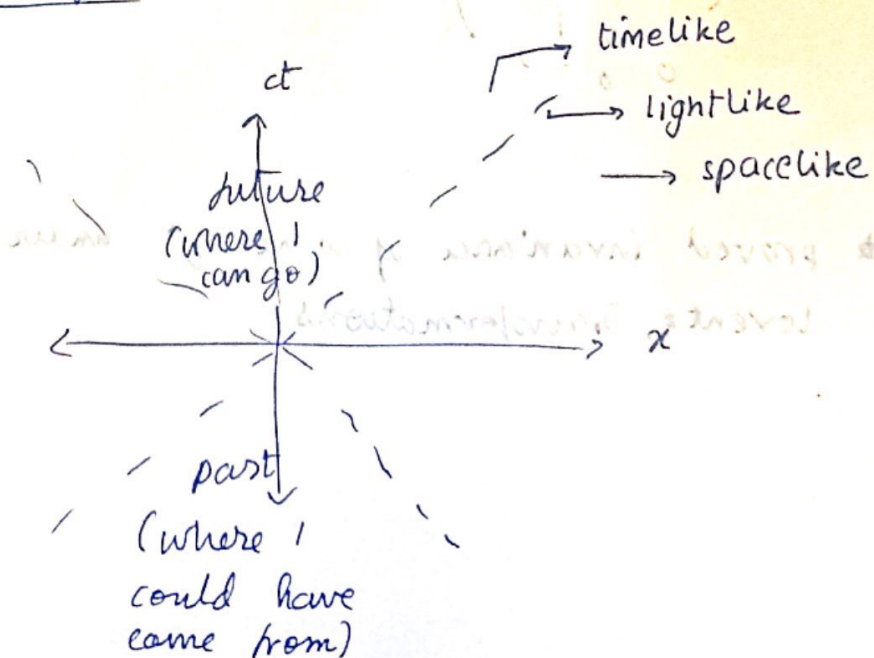 timelike
ct
lightlike
spacelike
future
(where I
can go)
x
past
(where I
could have
come from)